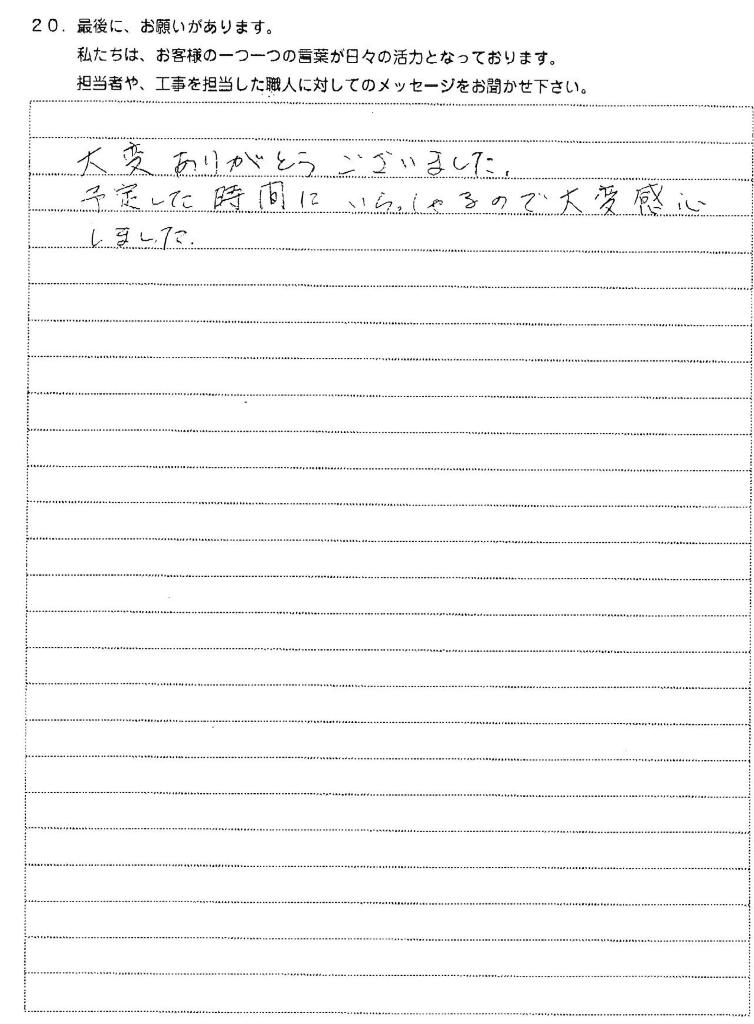 20. 最後に、お願いがあります。
私たちは、お客様の一つ一つの言葉が日々の活力となっております。
担当者や、工事を担当した職人に対してのメッセージをお聞かせ下さい。
大変ありがとうございました.
予定した時間にいらっしゃるので大変感心
しました.